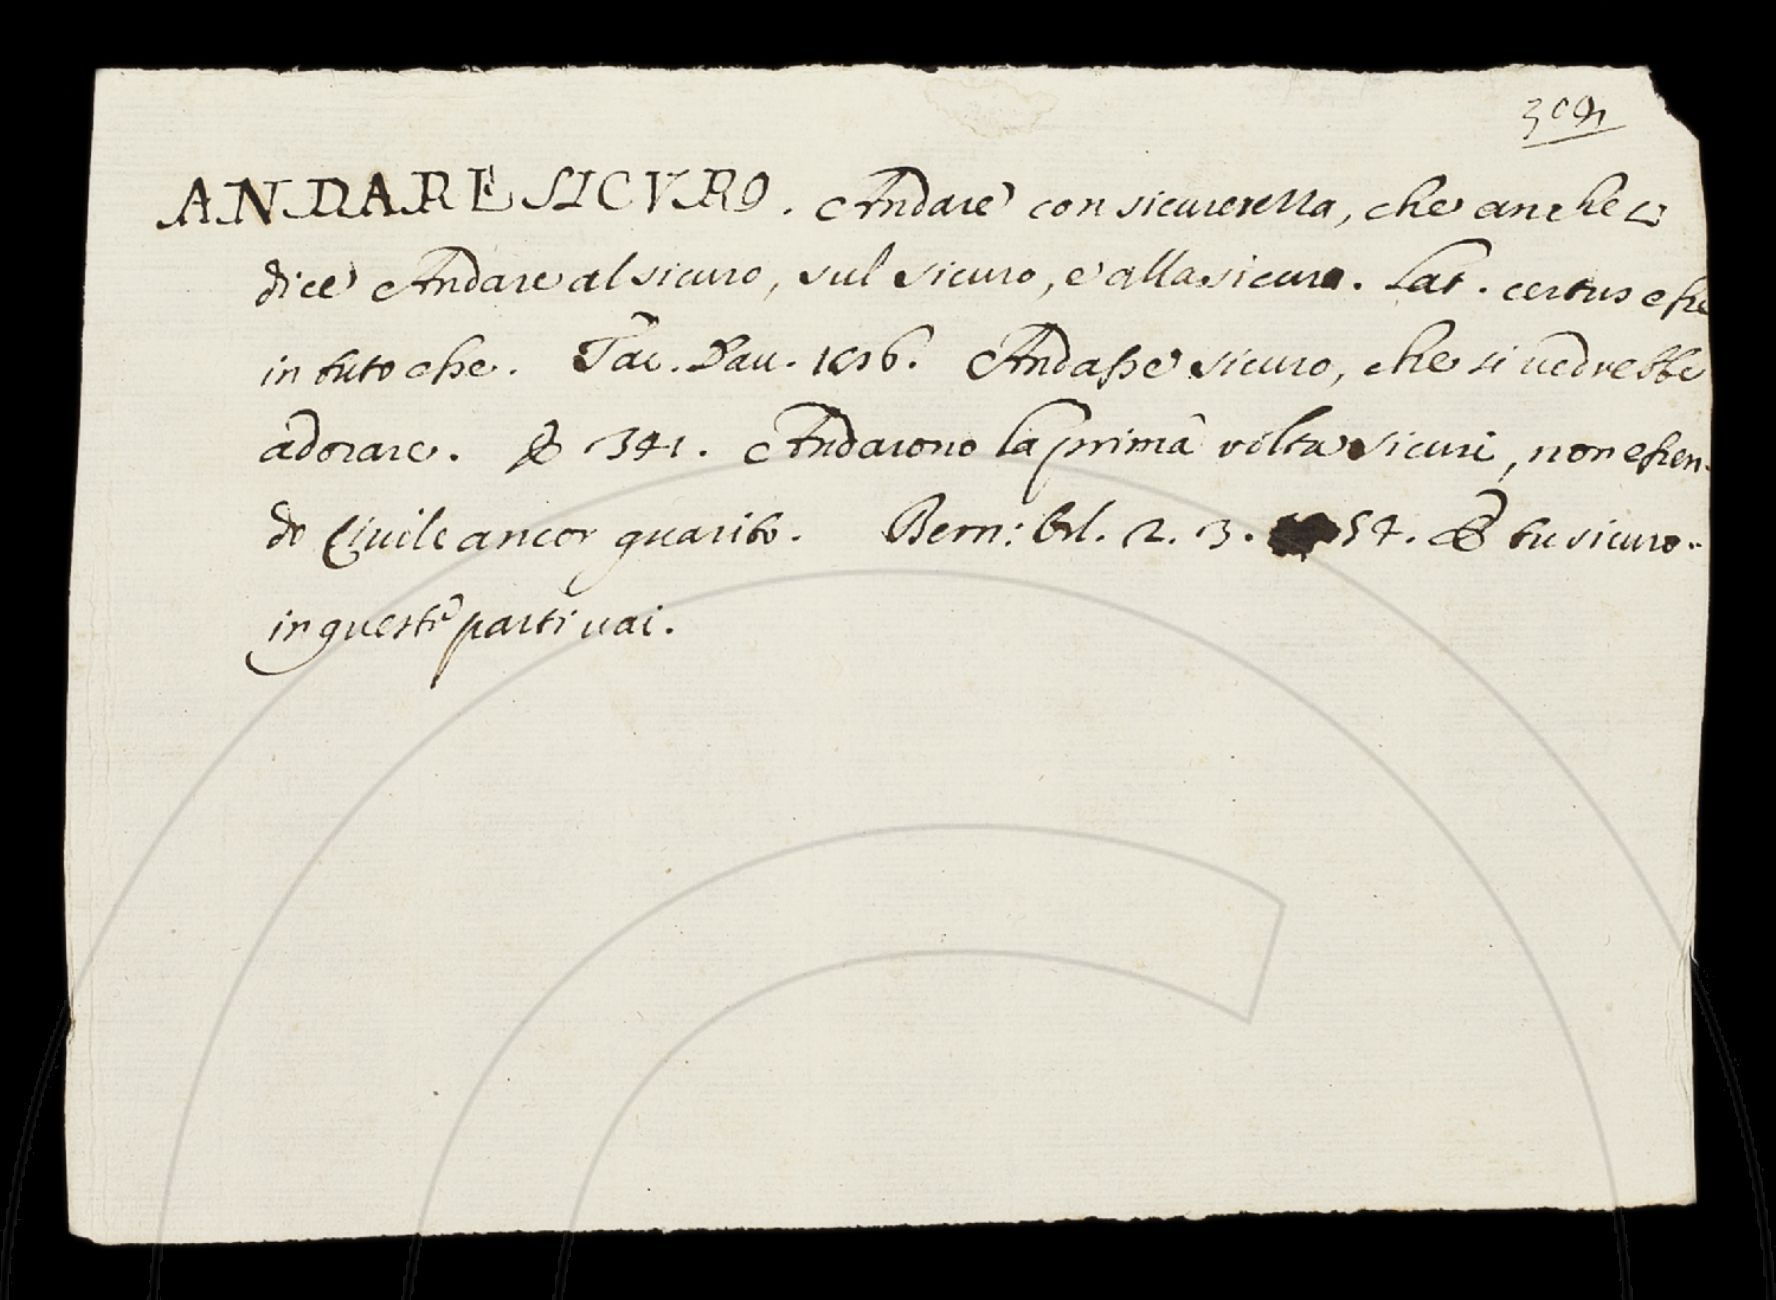 ANDARE SICVRO. Andare con sicurezza, che anche si
dice Andare al sicuro, sul sicuro, e alla sicura. Lat. certus esse
in tuto esse. Tac. Dau. Andasse sicuro, che si uedrebbe
adorare. E 341. Andarono la prima volta sicuri, non essen-
do Ciuile ancor guarito. Bern: Orl. 2. 3. 54. E tu sicuro
in queste parti uai.